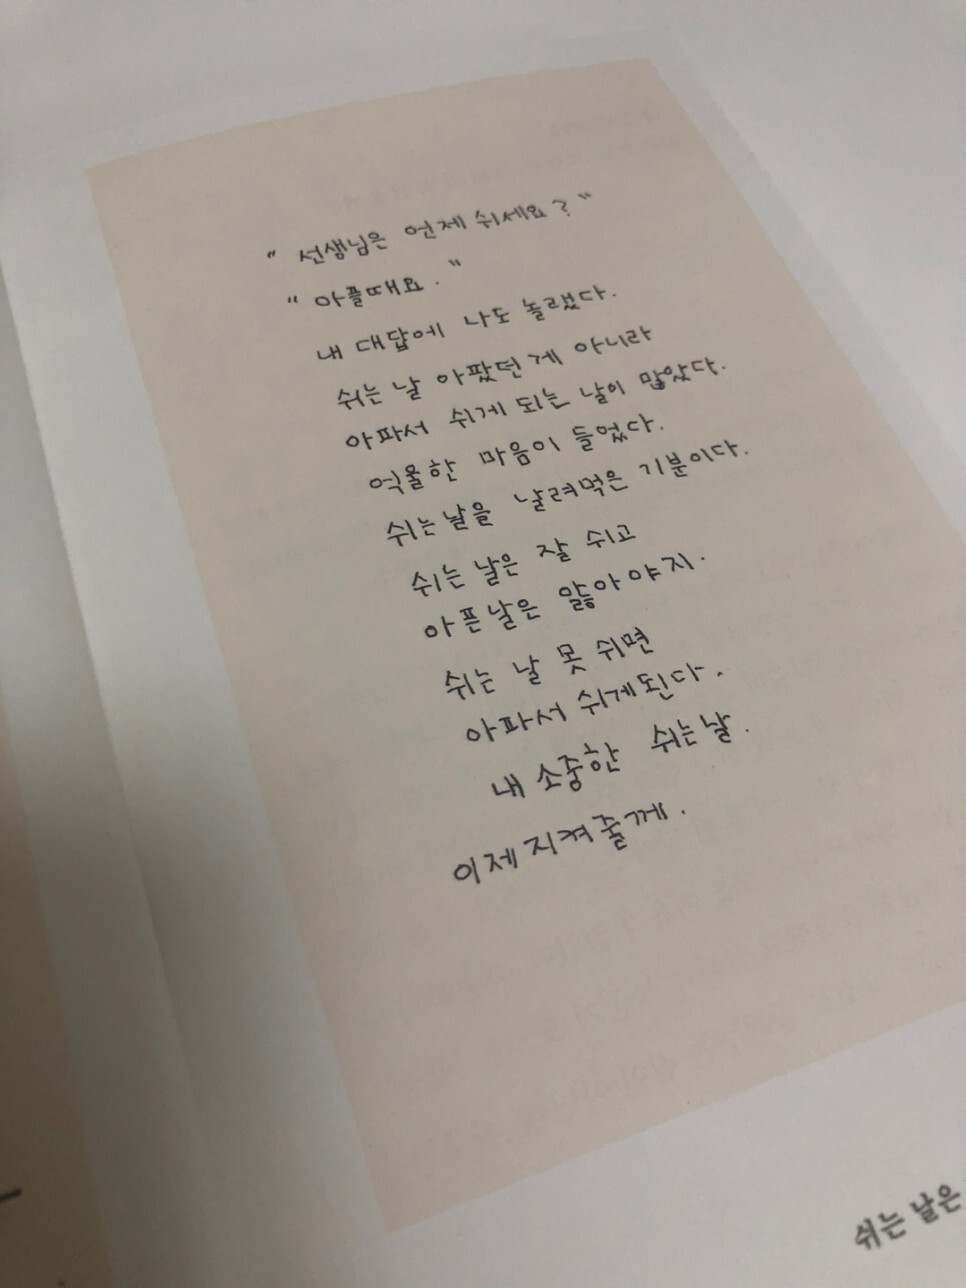 " 선생님은 언제 쉬세요? "
" 아플때요. "
내 대답에 나도 놀랬다.
쉬는 날 아팠던 게 아니라
아파서 쉬게 되는 날이 많았다.
억울한 마음이 들었다.
쉬는날을 날려먹은 기분이다.
쉬는 날은 잘 쉬고
아픈날은 앓아야지.
쉬는 날 못 쉬면
아파서 쉬게된다.
내 소중한 쉬는날.
이제지켜줄께.
쉬는 날은